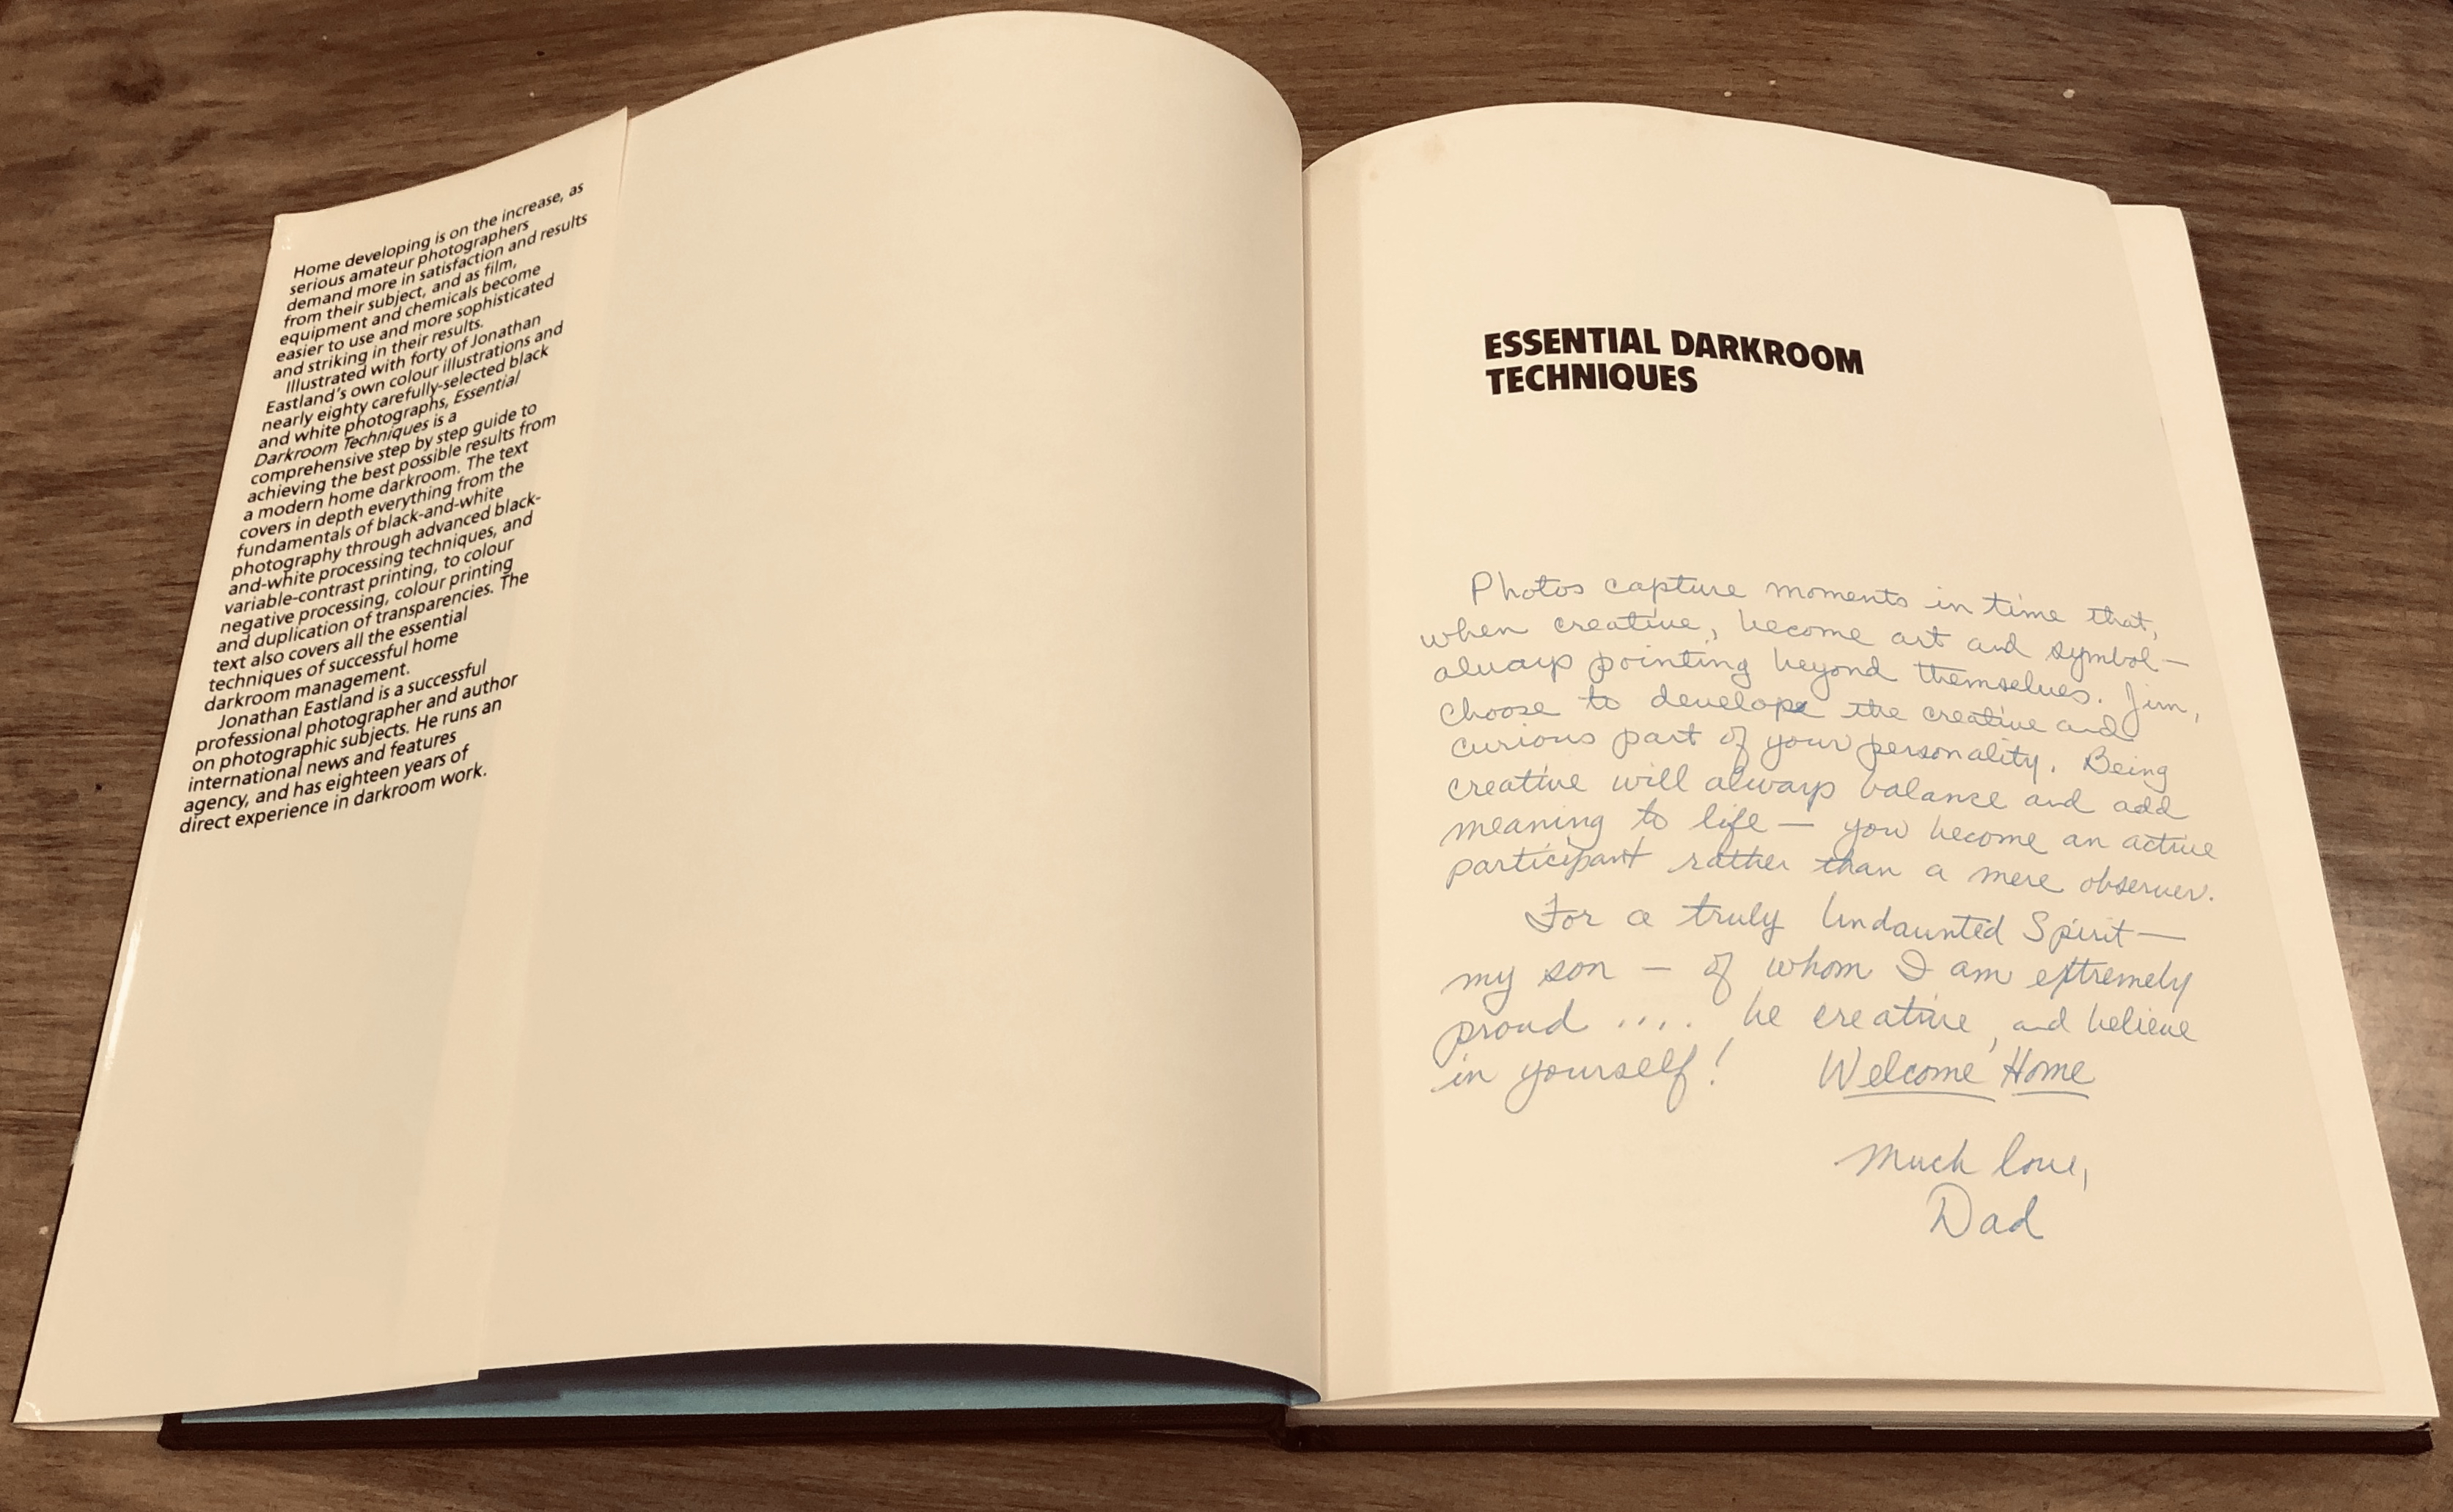 Home developing is on the increase, as
serious amateur photographers
demand more in satisfaction and results
from their subject, and as film,
equipment and chemicals become
easier to use and more sophisticated
and striking in their results.
Illustrated with forty of Jonathan
Eastland's own colour illustrations and
nearly eighty carefully-selected black
and white photographs, Essential
Darkroom Techniques is a
comprehensive step by step guide to
achieving the best possible results from
a modern home darkroom. The text
covers in depth everything from the
fundamentals of black-and-white
photography through advanced black-
and-white processing techniques, and
variable-contrast printing, to colour
negative processing, colour printing
and duplication of transparencies. The
text also covers all the essential
techniques of successful home
darkroom management.
Jonathan Eastland is a successful
professional photographer and author
on photographic subjects. He runs an
international news and features
agency, and has eighteen years of
direct experience in darkroom work.
ESSENTIAL DARKROOM
TECHNIQUES
Photos capture moments in time that,
when creative, become art and symbol—
always pointing beyond themselves. Jim,
choose to develope the creative and
curious part of your personality. Being
creative will always balance and add
meaning to life — you become an active
participant rather than a mere observer.
For a truly Undaunted Spirit—
my son — of whom I am extremely
proud .... be creative, and believe
in yourself! Welcome Home
Much love,
Dad